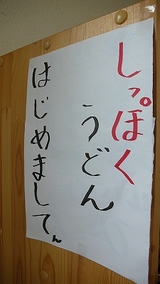 しっぽく
うどん
はじめましてん